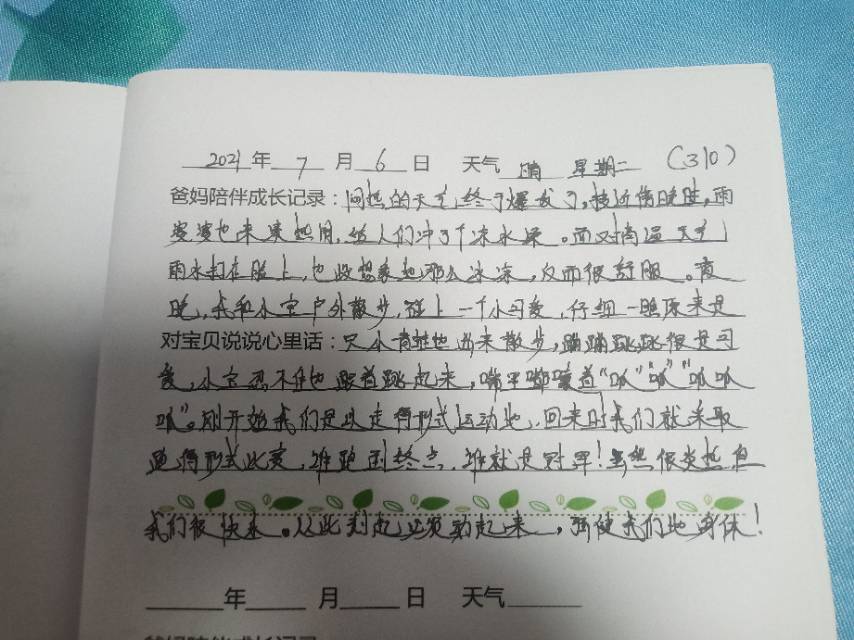 2021 年 7 月 6 日 天气 晴 星期二 (310)
爸妈陪伴成长记录:闷热的天气终于爆发了,接近傍晚时,雨
婆婆也来凑热闹,给人们冲了个凉水澡。面对高温天气
雨水打在脸上,也没想象地那么冰凉,反而很舒服。夜
晚,我和小宝户外散步,碰上一个小可爱,仔细一瞧原来是
对宝贝说说心里话:只小青蛙也出来散步,蹦蹦跳跳很是可
爱,小宝忍不住也跟着跳起来,嘴里嘟囔着“呱”“呱”“呱呱
呱”。刚开始我们是以走得形式运动地,回来时我们就采取
跑得形式比赛,谁跑到终点,谁就是冠军!虽然很炎热但
我们很快乐。从此刻起让运动起来,强健我们地身体!
年 月 日 天气
爸妈陪伴成长记录: